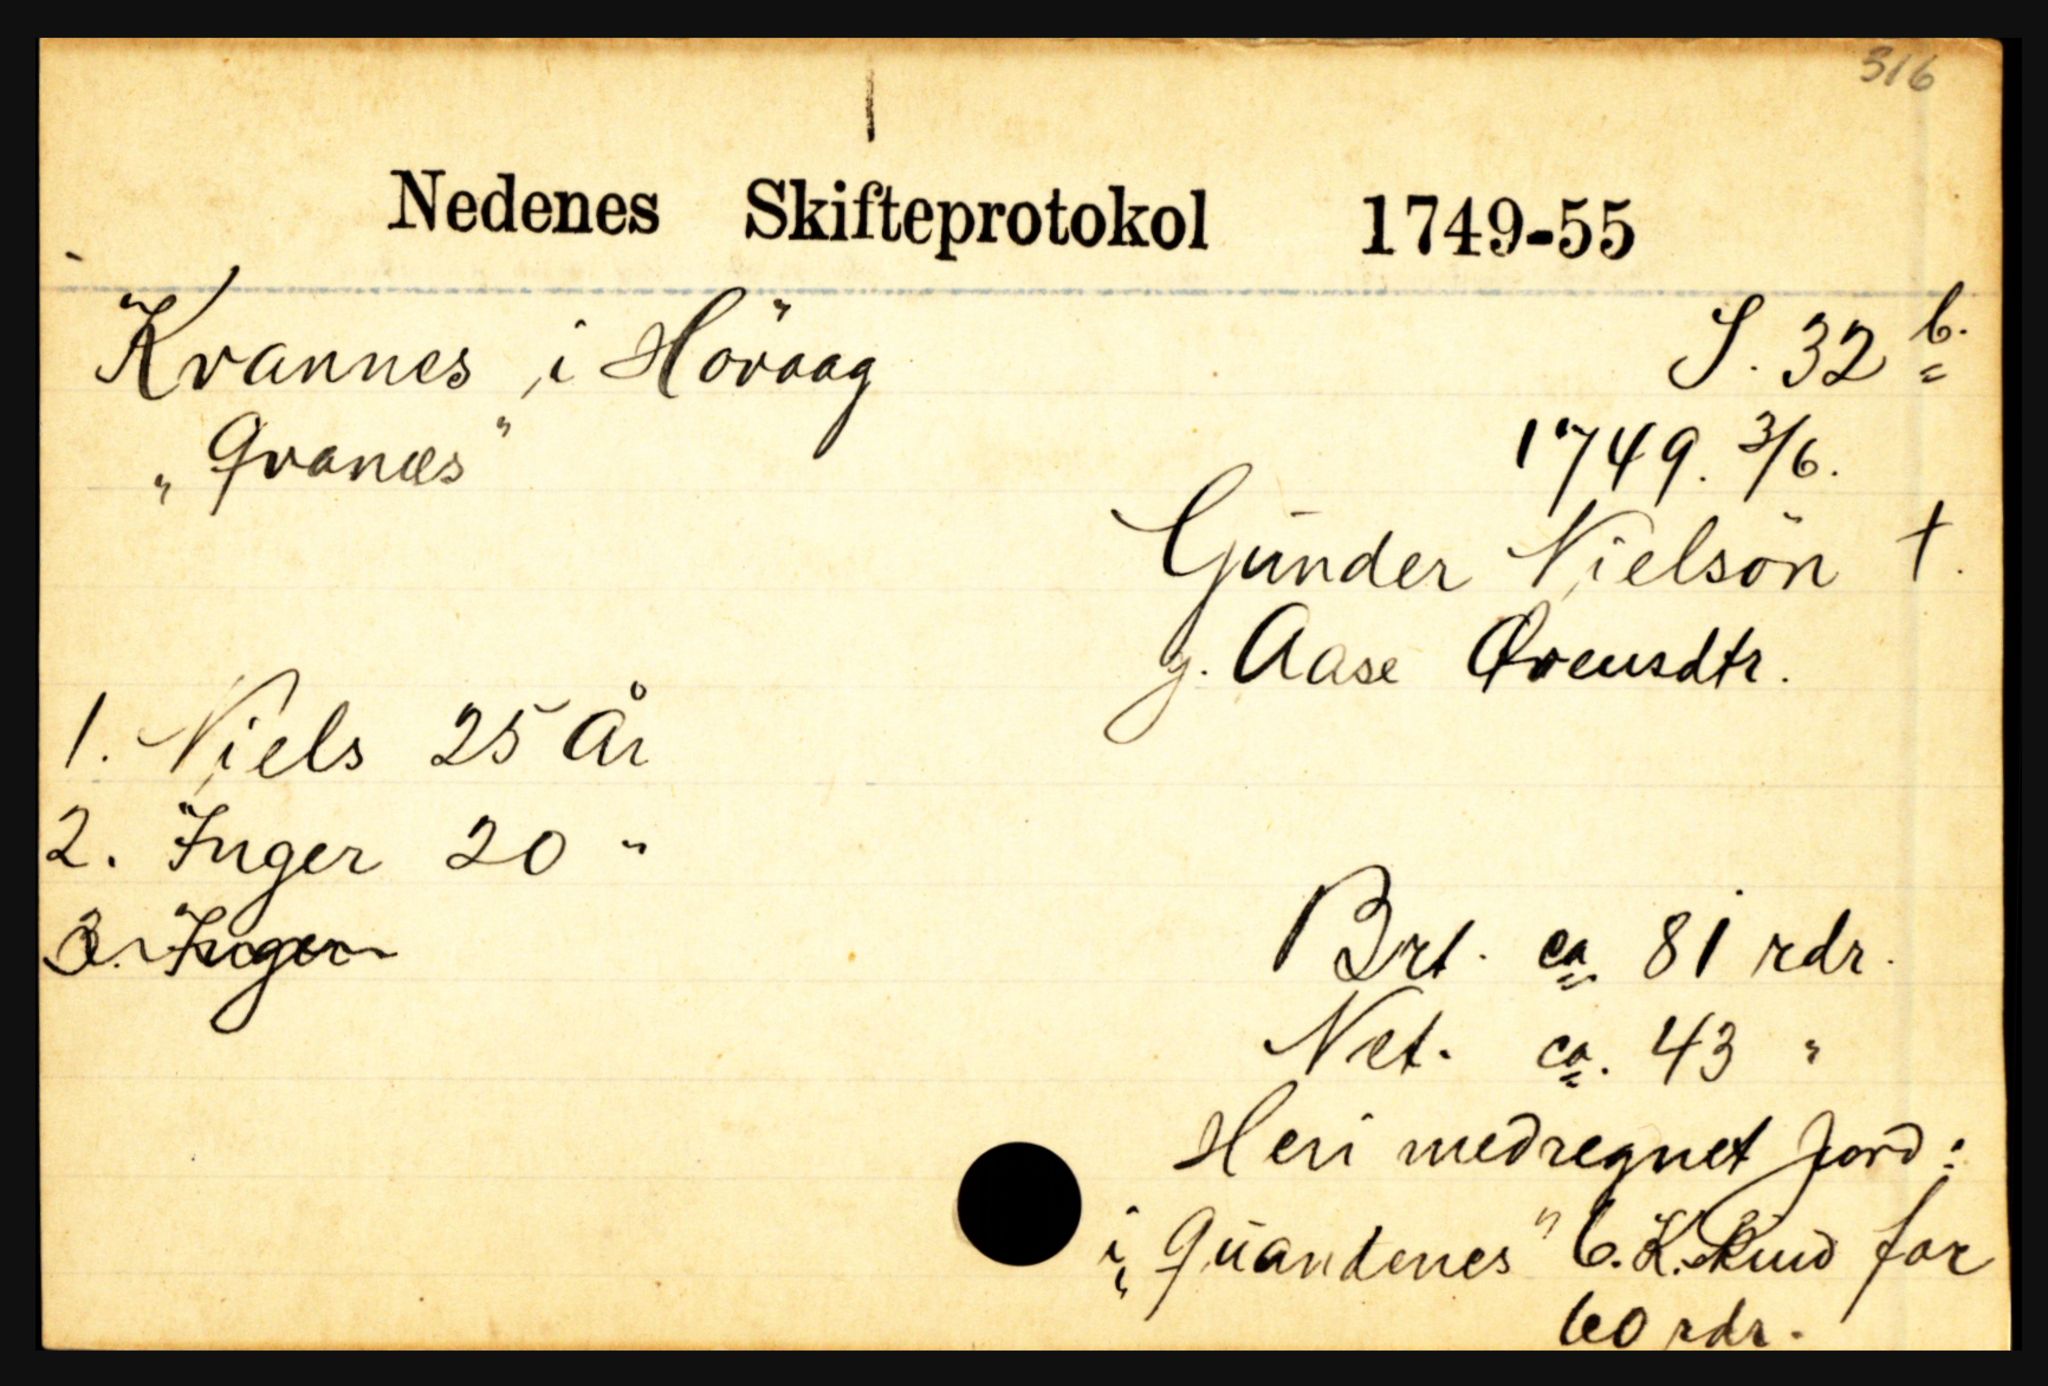 316
Nedenes Skifteprotokol 1749-55
Kvannes i Hövaag S. 32 b.
"Qvanæs" 1749. 3/6.
Gunder Nielsön †.
g. Aase Ovensdtr.
1. Niels 25 År
2. Inger 20 "
3. Inger
Brt. ca. 81 rdr.
Net. ca. 43 "
Heri medregnet Jord:
i "Quandenes" 6. K.skind for
60 rdr.